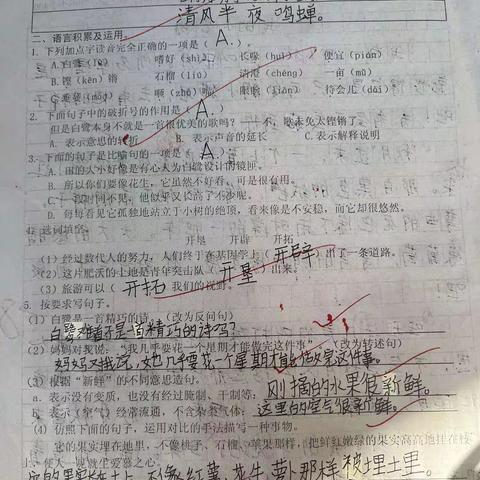 清风半夜鸣蝉。
二、语言积累及运用。
1. 下列加点字读音完全正确的一项是( A. )
A.白鹭 嗜好(shì) 长喙(huì) 便宜(pián)
B.铿(kēn)锵 石榴(liú) 清澄(chéng) 一亩(mǔ)
待会儿(dāi)
2. 下面句子中的破折号的作用是( A. )
但是白鹭本身不就是一首很优美的歌吗? 不,歌未免太铿锵了
A. 表示意思的转折 B. 表示声音的延长 C.表示解释说明
3. 下面的句子是比喻句的一项是( A. )
A. 田的大小好像是有心人为白鹭设计的镜匣。
B. 所以你们要像花生,它虽然不好看,可是很有用。
C. 一段时间不见,他似乎又长高了不少呢。
D. 每每看见它孤独地站立于小树的绝顶,看来像是不安稳,而它却很悠然。
4. 选词填空。
开垦 开辟 开拓
(1) 经过数代人的努力,人们终于在基因学上( 开辟 )出了一条道路。
(2) 这片肥沃的土地是青年突击队( 开垦 )出来。
(3) 旅游可以( 开拓 )我们的视野。
5. 按要求写句子。
(1) 白鹭是一首精巧的诗。 (改为反问句)
白鹭难道不是一首精巧的诗吗?
(2) 妈妈对我说:“我几乎要花一个星期才能做完这件事” (改为转述句)
妈妈对我说,她几乎要花一个星期才能做完这件事。
(3) 根据“新鲜”的不同意思造句。
a. 表示没有变质,也没有经过腌制、干制等: 刚摘的水果很新鲜。
b. 表示(空气)经常流通,不含杂类气体: 这里的空气很新鲜。
(4) 仿照下面的句子,运用对比的手法描写一种事物。
它的果实埋在地里,不像桃子、石榴、苹果那样,把鲜红嫩绿的果实高高地挂在枝
上,使人一见就生爱慕之心。
不像红薯、花生、萝卜那样被埋土里。